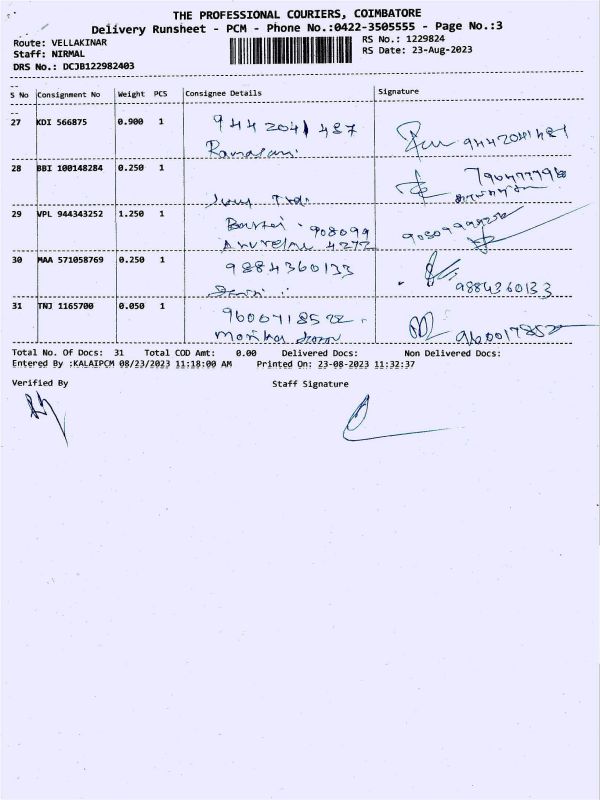 THE PROFESSIONAL COURIERS, COIMBATORE
Delivery Runsheet - PCM - Phone No.:0422-3505555 - Page No.:3
Route: VELLAKINAR
RS No.: 1229824
Staff: NIRMAL
RS Date: 23-Aug-2023
DRS No.: DCJB122982403
S No Consignment No Weight PCS Consignee Details Signature
27 KDI 566875 0.900 1 944 2041 487
9442041487
28 BBI 100148284 0.250 1
29 VPL 944343252 1.250 1 908099
4272
30 MAA 571058769 0.250 1 9884360133
9884360133
31 TNJ 1165700 0.050 1
Total No. Of Docs: 31 Total COD Amt: 0.00 Delivered Docs: Non Delivered Docs:
Entered By :KALAIPCM 08/23/2023 11:18:00 AM Printed On: 23-08-2023 11:32:37
Verified By Staff Signature